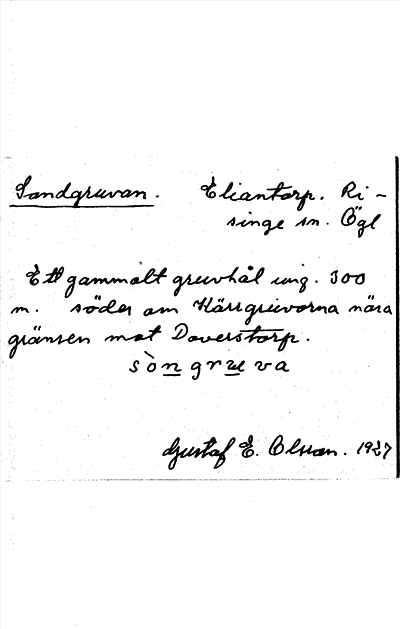 Sandgruvan. Eliantorp. Ri-
singe sn. Ögl
Ett gammalt gruvhål ung. 300
m. söder om Kärrgruvorna nära
gränsen mot Doverstorp.
sòngruva
Gustaf E. Olsson. 1927